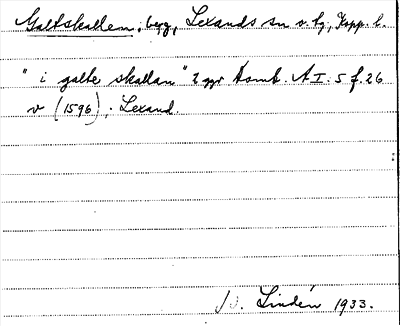 Galtskallen, berg, Leksands sn v. hg; Kopp. l.
"i galte skallan" 2 ggr Domb. A I: 5 f. 26
v (1596); Lexand.
B. Lindén 1933.